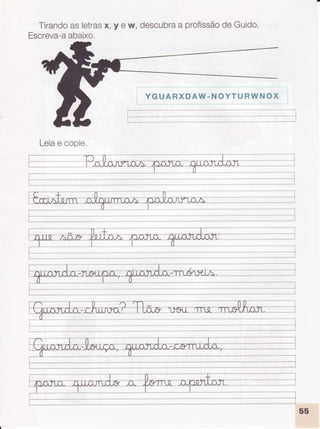 Tirando as letras x, y e w, descubra a profissão de Guido.
Escreva-a abaixo.
YGUARXDAW-NOYTURWNOX
Leia e copie.
Palavras para guardar
Existem algumas palavras
que são feitas para guardar:
guarda-roupa, guarda-móveis.
Guarda-chuva? Não vou me molhar.
Guarda-louça, guarda-comida,
para quando a fome apertar.
55